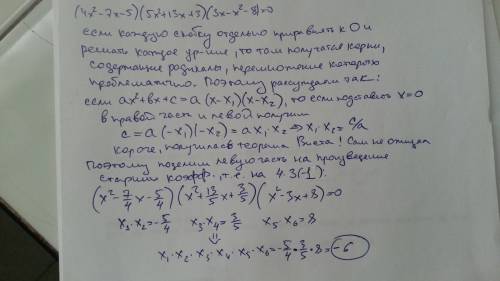 (4x²-7x-5)(5x²+13x+3)(3x-x²-8)=0
если каждую скобку отдельно приравнять к 0 и
решать каждое ур-ние, то там получатся корни,
содержащие радикалы, перемножение которых
проблематично. Поэтому рассуждаем так:
если ax²+bx+c=a(x-x₁)(x-x₂), то если подставить x=0
в правой часть и левой получим
c=a(-x₁)(-x₂)=ax₁x₂ ⇒ x₁x₂=c/a
короче, получилась теорема Виета! Сам не ожидал
Поэтому поделим левую часть на произведение
старших коэфф., т.е. на 4·3(-1).
(x²-7/4x-5/4)(x²+13/5x+3/5)(x²-3x+8)=0
x₁·x₂=-5/4 x₃x₄=3/5 x₅x₆=8
⇓
x₁·x₂·x₃·x₄·x₅·x₆=-5/4·3/5·8=-6